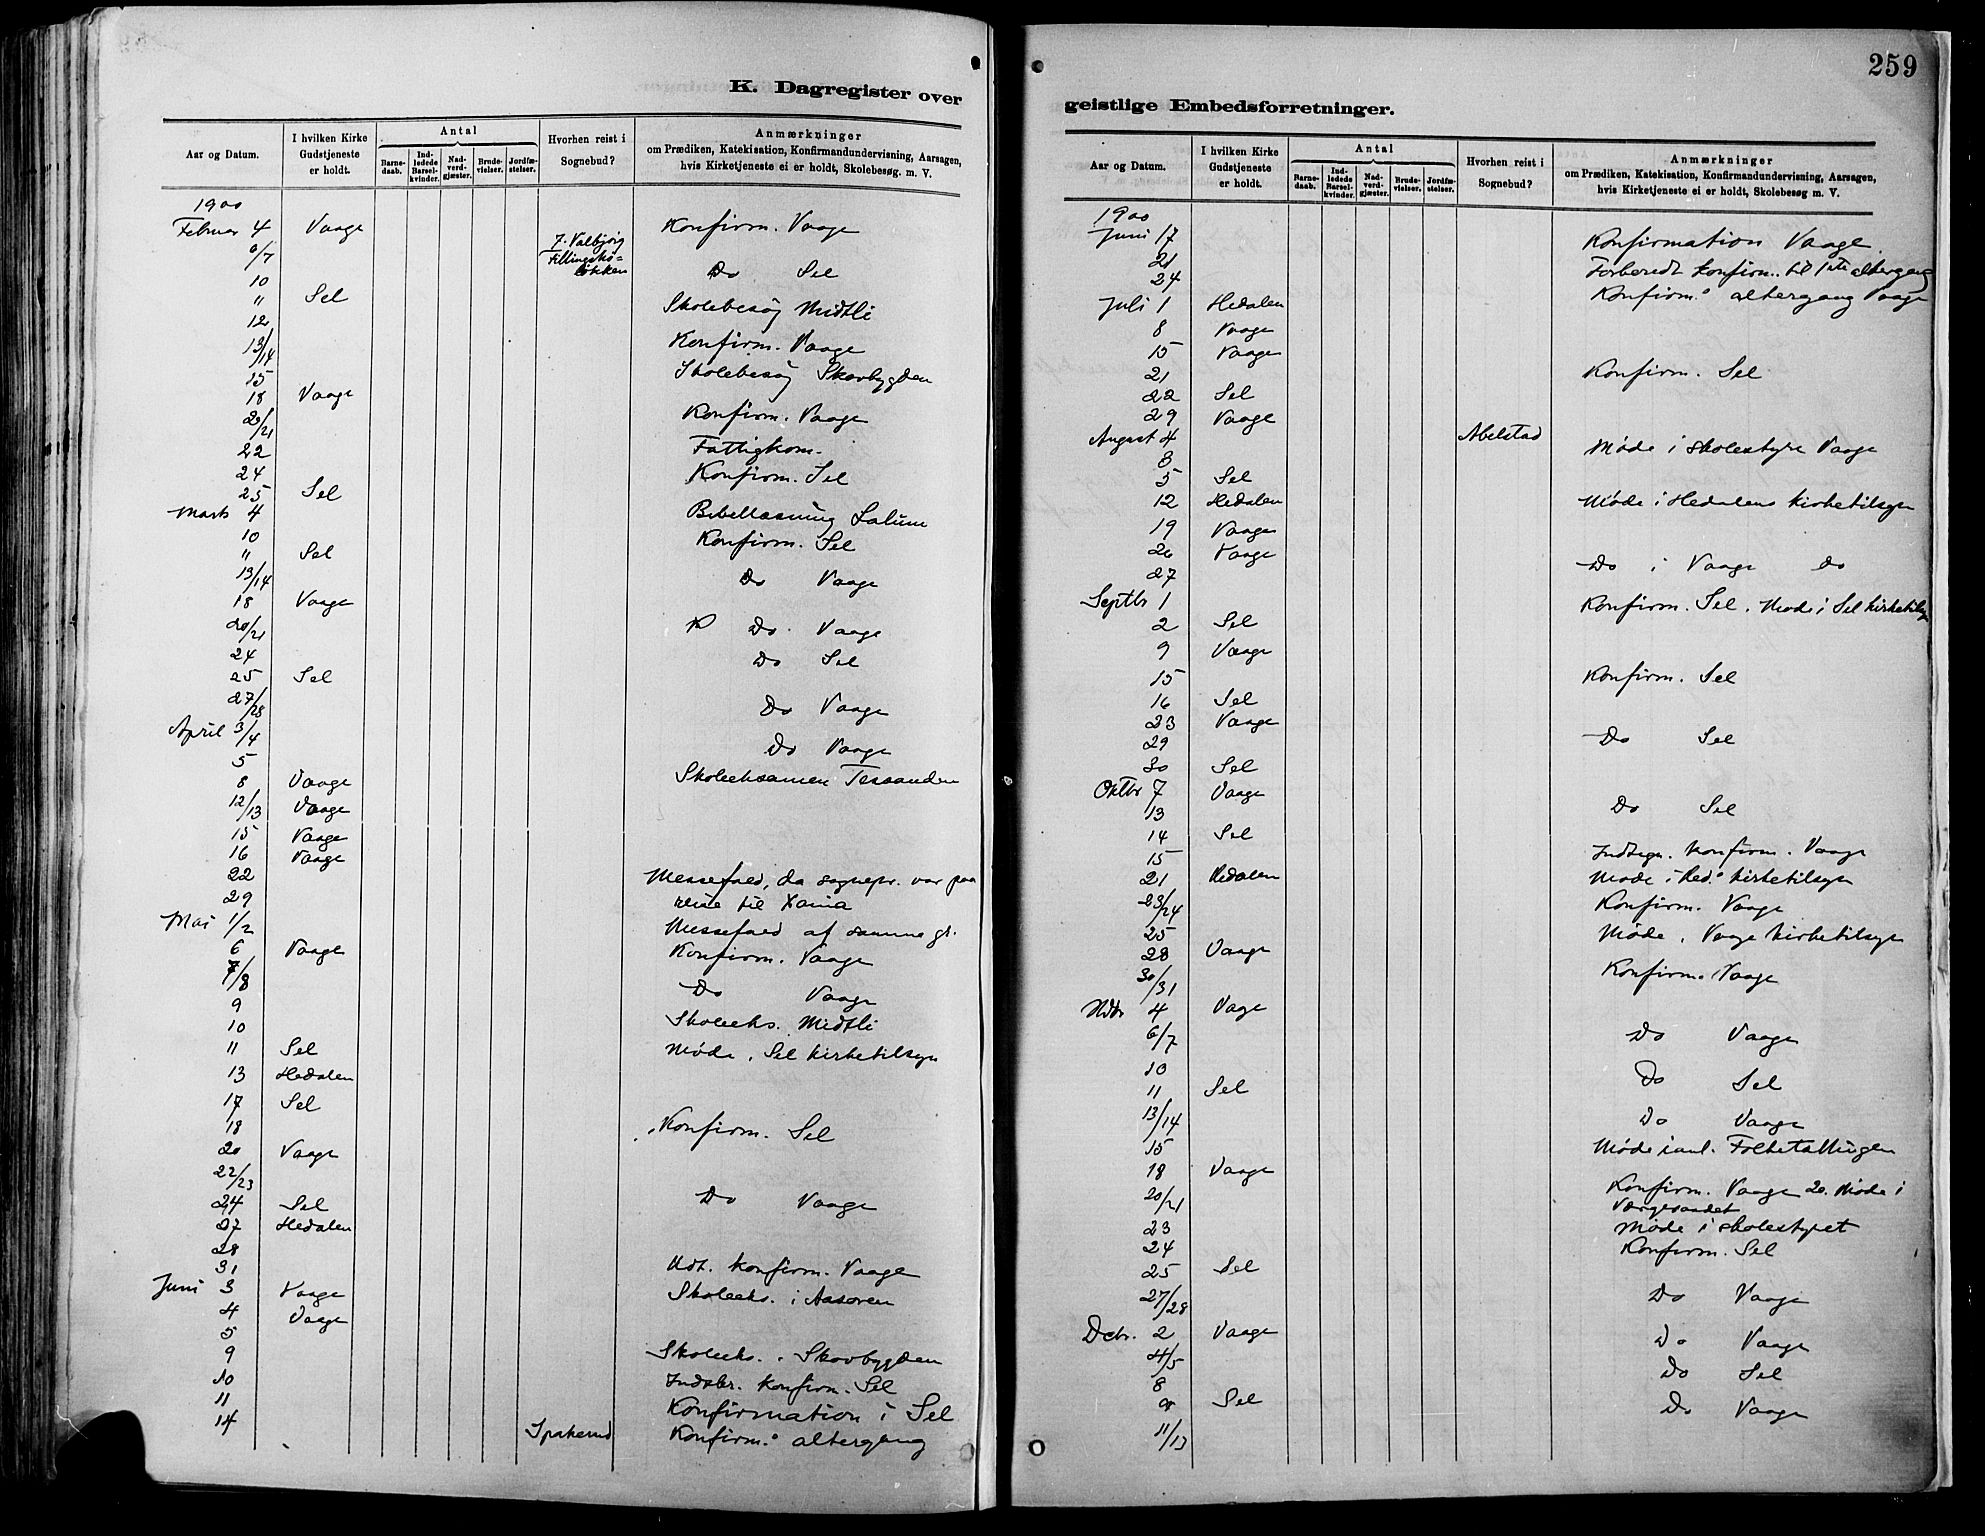 259
K. Dagregister over
Aar og Datum. I hvilken Kirke Gudstjeneste er holdt. Antal Barnedaab. Indledede Barselkvinder. Nadverdgjæster. Brudevielser. Jordfæstelser. Hvorhen reist i Sognebud? Anmærkninger om Prædiken, Katekisation, Konfirmandundervisning, Aarsagen, hvis Kirketjeneste ei er holdt, Skolebesøg. m. V.
1900
Februar 4 Vaage
6/7 Konfirm. Vaage
10 Do Sel
" Sel
12 Skolebesøg Midtli
13/14 Konfirm. Vaage
15 Skolebesøg Skovbygden
18 Vaage
20/21 Konfirm. Vaage
22 Fattigkom.
24 Konfirm. Sel
25 Sel
Marts 4 Bibellæsning Lalum
10 Konfirm. Sel
" Sel
13/14 Do Vaage
18 Vaage
20/21 Do Vaage
24 Do Sel
25 Sel
27/28 Do Vaage
April 3/4 Do Vaage
5 Skoleeksamen Tessanden
8 Vaage
12/13 Vaage
15 Vaage
16 Vaage
22 Messefald, da sognepr. var paa reise til Xania
29 Messefald af samme gr.
Mai 1/2 Konfirm. Vaage
6 Vaage
7/8 Do Vaage
9 Skoleeks. Midtli
10 Møde i Sel kirketilsyn
11 Sel
13 Hedalen
17 Sel
18 Konfirm. Sel
20 Vaage
22/23 Do Vaage
24 Sel
27 Hedalen
28 Udt. konfirm. Vaage
31 Skoleeks. i Aasoren
Juni 3 Vaage
4 Vaage
5 Skoleeks. i Skovbygden
9 Indskr. konfirm. Sel
10 Konfirmation i Sel
11 Konfirm.s altergang
14 Spakerud
geistlige Embedsforretninger.
Aar og Datum. I hvilken Kirke Gudstjeneste er holdt. Antal Barnedaab. Indledede Barselkvinder. Nadverdgjæster. Brudevielser. Jordfæstelser. Hvorhen reist i Sognebud? Anmærkninger om Prædiken, Katekisation, Konfirmandundervisning, Aarsagen, hvis Kirketjeneste ei er holdt, Skolebesøg m. V.
1900
Juni 17 Konfirmation Vaage
21 Forberedt konfirm. til 1ste altergang
24 Konfirm.s altergang Vaage
Juli 1 Hedalen
8 Vaage
15 Vaage
21 Konfirm. Sel
22 Sel
29 Vaage
August 4 Abelstad Møde i skolestyre Vaage
8
5 Sel
12 Hedalen Møde i Hedalens kirketilsyn
19 Vaage
26 Vaage
27 Do i Vaage Do
Septbr 1 Konfirm. Sel. Møde i Sel kirketilsyn
2 Sel
9 Vaage
15 Konfirm. Sel
16 Sel
23 Vaage
29 Do Sel
30 Sel
Oktbr 7 Vaage
13 Do Sel
14 Sel
15 Indtegn. konfirm. Vaage
21 Hedalen Møde i Hed.s kirketilsyn
23/24 Konfirm. Vaage
25 Møde i Vaage kirketilsyn
28 Vaage
30/31 Konfirm. Vaage
Novbr 4 Vaage
6/7 Do Vaage
10 Do Sel
11 Sel
13/14 Do Vaage
15 Møde i anl. Folketællingen
18 Vaage
20/21 Konfirm. Vaage 20. Møde i Værgeraadet
23 Møde i skolestyret
24 Konfirm. Sel
25 Sel
27/28 Do Vaage
Dcbr. 2 Vaage
4/5 Do Vaage
8 Do Sel
9 Sel
11/13 Do Vaage